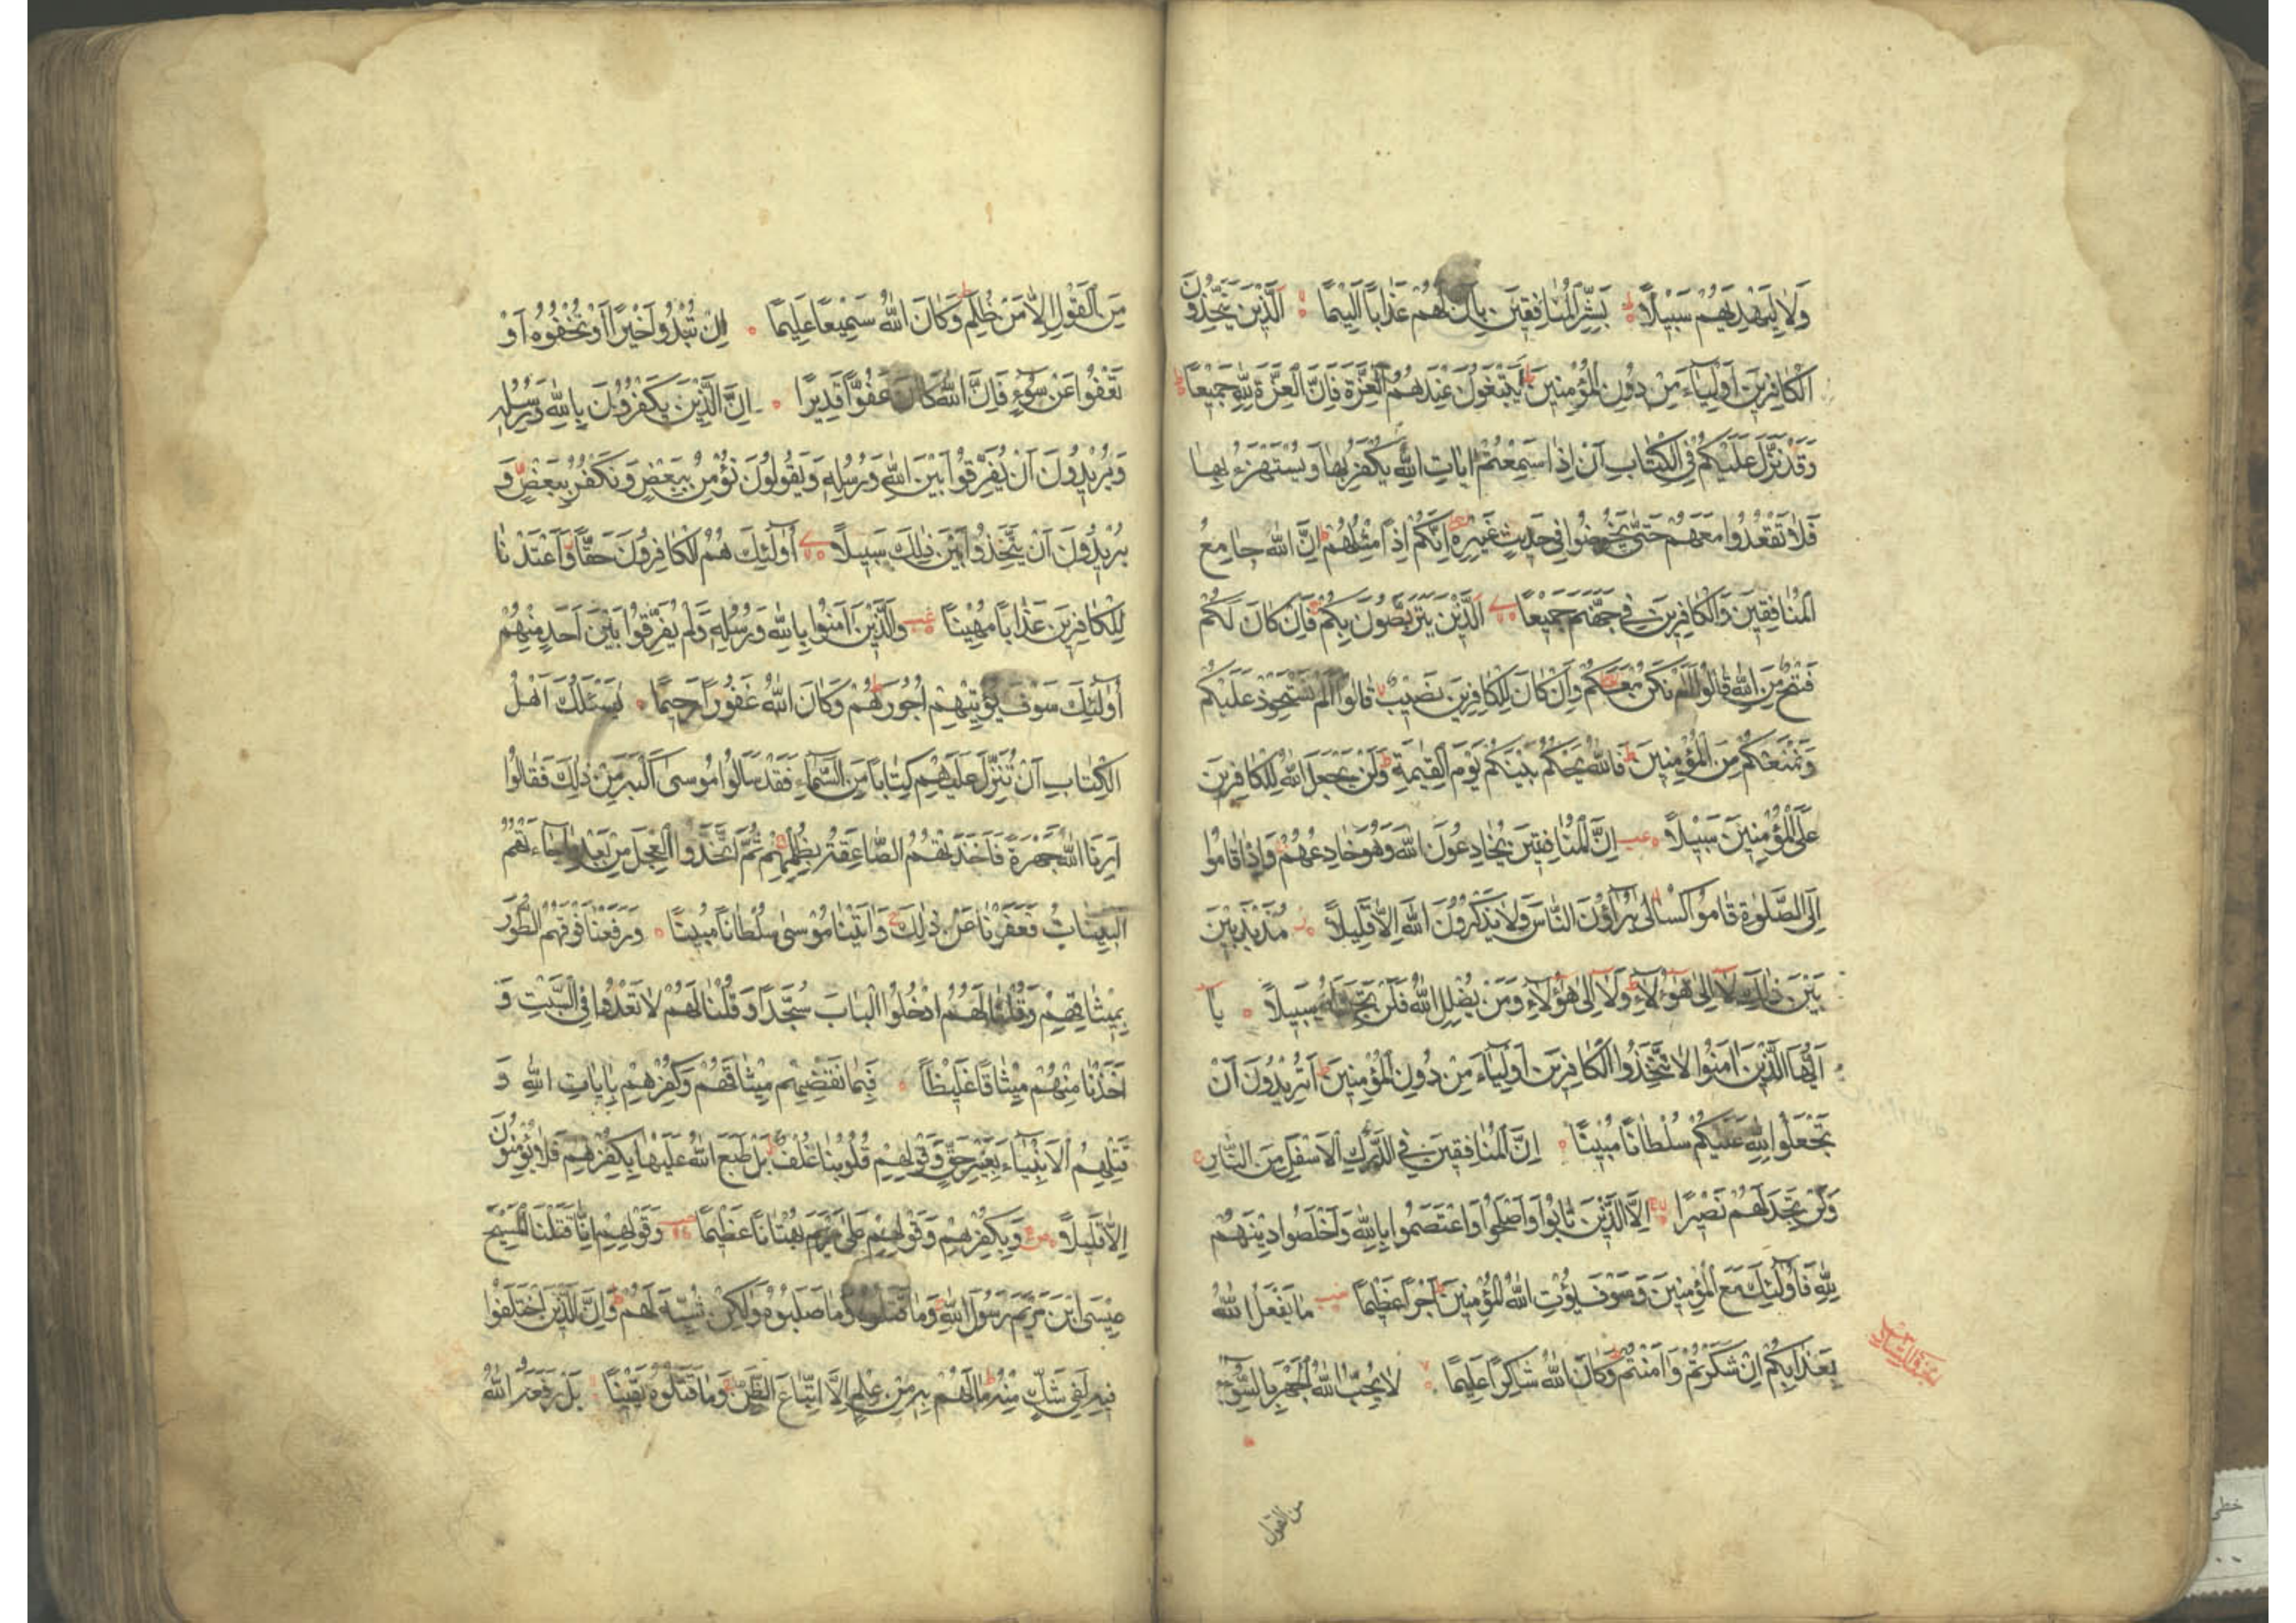 وَلَا لِيَهْدِيَهُمْ سَبِيلًا بَشِّرِ الْمُنَافِقِينَ بِأَنَّ لَهُمْ عَذَابًا أَلِيمًا الَّذِينَ يَتَّخِذُونَ
الْكَافِرِينَ أَوْلِيَاءَ مِنْ دُونِ الْمُؤْمِنِينَ أَيَبْتَغُونَ عِنْدَهُمُ الْعِزَّةَ فَإِنَّ الْعِزَّةَ لِلَّهِ جَمِيعًا
وَقَدْ نَزَّلَ عَلَيْكُمْ فِي الْكِتَابِ أَنْ إِذَا سَمِعْتُمْ آيَاتِ اللَّهِ يُكْفَرُ بِهَا وَيُسْتَهْزَءُ بِهَا
فَلَا تَقْعُدُوا مَعَهُمْ حَتَّى يَخُوضُوا فِي حَدِيثٍ غَيْرِهِ إِنَّكُمْ إِذًا مِثْلُهُمْ إِنَّ اللَّهَ جَامِعُ
الْمُنَافِقِينَ وَالْكَافِرِينَ فِي جَهَنَّمَ جَمِيعًا الَّذِينَ يَتَرَبَّصُونَ بِكُمْ فَإِنْ كَانَ لَكُمْ
فَتْحٌ مِنَ اللَّهِ قَالُوا أَلَمْ نَكُنْ مَعَكُمْ وَإِنْ كَانَ لِلْكَافِرِينَ نَصِيبٌ قَالُوا أَلَمْ نَسْتَحْوِذْ عَلَيْكُمْ
وَنَمْنَعْكُمْ مِنَ الْمُؤْمِنِينَ فَاللَّهُ يَحْكُمُ بَيْنَكُمْ يَوْمَ الْقِيمَةِ وَلَنْ يَجْعَلَ اللَّهُ لِلْكَافِرِينَ
عَلَى الْمُؤْمِنِينَ سَبِيلًا إِنَّ الْمُنَافِقِينَ يُخَادِعُونَ اللَّهَ وَهُوَ خَادِعُهُمْ وَإِذَا قَامُوا
إِلَى الصَّلٰوةِ قَامُوا كُسَالَى يُرَاؤُنَ النَّاسَ وَلَا يَذْكُرُونَ اللَّهَ إِلَّا قَلِيلًا مُذَبْذَبِينَ
بَيْنَ ذَلِكَ لَا إِلَى هَؤُلَاءِ وَلَا إِلَى هَؤُلَاءِ وَمَنْ يُضْلِلِ اللَّهُ فَلَنْ تَجِدَ لَهُ سَبِيلًا يَا
أَيُّهَا الَّذِينَ آمَنُوا لَا تَتَّخِذُوا الْكَافِرِينَ أَوْلِيَاءَ مِنْ دُونِ الْمُؤْمِنِينَ أَتُرِيدُونَ أَنْ
تَجْعَلُوا لِلَّهِ عَلَيْكُمْ سُلْطَانًا مُبِينًا إِنَّ الْمُنَافِقِينَ فِي الدَّرْكِ الْأَسْفَلِ مِنَ النَّارِ
وَلَنْ تَجِدَ لَهُمْ نَصِيرًا إِلَّا الَّذِينَ تَابُوا وَأَصْلَحُوا وَاعْتَصَمُوا بِاللَّهِ وَأَخْلَصُوا دِينَهُمْ
لِلَّهِ فَأُولَئِكَ مَعَ الْمُؤْمِنِينَ وَسَوْفَ يُؤْتِ اللَّهُ الْمُؤْمِنِينَ أَجْرًا عَظِيمًا مَا يَفْعَلُ اللَّهُ
بِعَذَابِكُمْ إِنْ شَكَرْتُمْ وَآمَنْتُمْ وَكَانَ اللَّهُ شَاكِرًا عَلِيمًا لَا يُحِبُّ اللَّهُ الْجَهْرَ بِالسُّوءِ
من القول
مِنَ الْقَوْلِ إِلَّا مَنْ ظُلِمَ وَكَانَ اللَّهُ سَمِيعًا عَلِيمًا إِنْ تُبْدُوا خَيْرًا أَوْ تُخْفُوهُ أَوْ
تَعْفُوا عَنْ سُوءٍ فَإِنَّ اللَّهَ كَانَ عَفُوًّا قَدِيرًا إِنَّ الَّذِينَ يَكْفُرُونَ بِاللَّهِ وَرُسُلِهِ
وَيُرِيدُونَ أَنْ يُفَرِّقُوا بَيْنَ اللَّهِ وَرُسُلِهِ وَيَقُولُونَ نُؤْمِنُ بِبَعْضٍ وَنَكْفُرُ بِبَعْضٍ وَ
يُرِيدُونَ أَنْ يَتَّخِذُوا بَيْنَ ذَلِكَ سَبِيلًا أُولَئِكَ هُمُ الْكَافِرُونَ حَقًّا وَأَعْتَدْنَا
لِلْكَافِرِينَ عَذَابًا مُهِينًا وَالَّذِينَ آمَنُوا بِاللَّهِ وَرُسُلِهِ وَلَمْ يُفَرِّقُوا بَيْنَ أَحَدٍ مِنْهُمْ
أُولَئِكَ سَوْفَ يُؤْتِيهِمْ أُجُورَهُمْ وَكَانَ اللَّهُ غَفُورًا رَحِيمًا يَسْئَلُكَ أَهْلُ
الْكِتَابِ أَنْ تُنَزِّلَ عَلَيْهِمْ كِتَابًا مِنَ السَّمَاءِ فَقَدْ سَأَلُوا مُوسَى أَكْبَرَ مِنْ ذَلِكَ فَقَالُوا
أَرِنَا اللَّهَ جَهْرَةً فَأَخَذَتْهُمُ الصَّاعِقَةُ بِظُلْمِهِمْ ثُمَّ اتَّخَذُوا الْعِجْلَ مِنْ بَعْدِ مَا جَاءَتْهُمُ
الْبَيِّنَاتُ فَعَفَوْنَا عَنْ ذَلِكَ وَآتَيْنَا مُوسَى سُلْطَانًا مُبِينًا وَرَفَعْنَا فَوْقَهُمُ الطُّورَ
بِمِيثَاقِهِمْ وَقُلْنَا لَهُمُ ادْخُلُوا الْبَابَ سُجَّدًا وَقُلْنَا لَهُمْ لَا تَعْدُوا فِي السَّبْتِ وَ
أَخَذْنَا مِنْهُمْ مِيثَاقًا غَلِيظًا فَبِمَا نَقْضِهِمْ مِيثَاقَهُمْ وَكُفْرِهِمْ بِآيَاتِ اللَّهِ وَ
قَتْلِهِمُ الْأَنْبِيَاءَ بِغَيْرِ حَقٍّ وَقَوْلِهِمْ قُلُوبُنَا غُلْفٌ بَلْ طَبَعَ اللَّهُ عَلَيْهَا بِكُفْرِهِمْ فَلَا يُؤْمِنُونَ
إِلَّا قَلِيلًا وَبِكُفْرِهِمْ وَقَوْلِهِمْ عَلَى مَرْيَمَ بُهْتَانًا عَظِيمًا وَقَوْلِهِمْ إِنَّا قَتَلْنَا الْمَسِيحَ
عِيسَى ابْنَ مَرْيَمَ رَسُولَ اللَّهِ وَمَا قَتَلُوهُ وَمَا صَلَبُوهُ وَلَكِنْ شُبِّهَ لَهُمْ وَإِنَّ الَّذِينَ اخْتَلَفُوا
فِيهِ لَفِي شَكٍّ مِنْهُ مَا لَهُمْ بِهِ مِنْ عِلْمٍ إِلَّا اتِّبَاعَ الظَّنِّ وَمَا قَتَلُوهُ يَقِينًا بَلْ رَفَعَهُ اللَّهُ